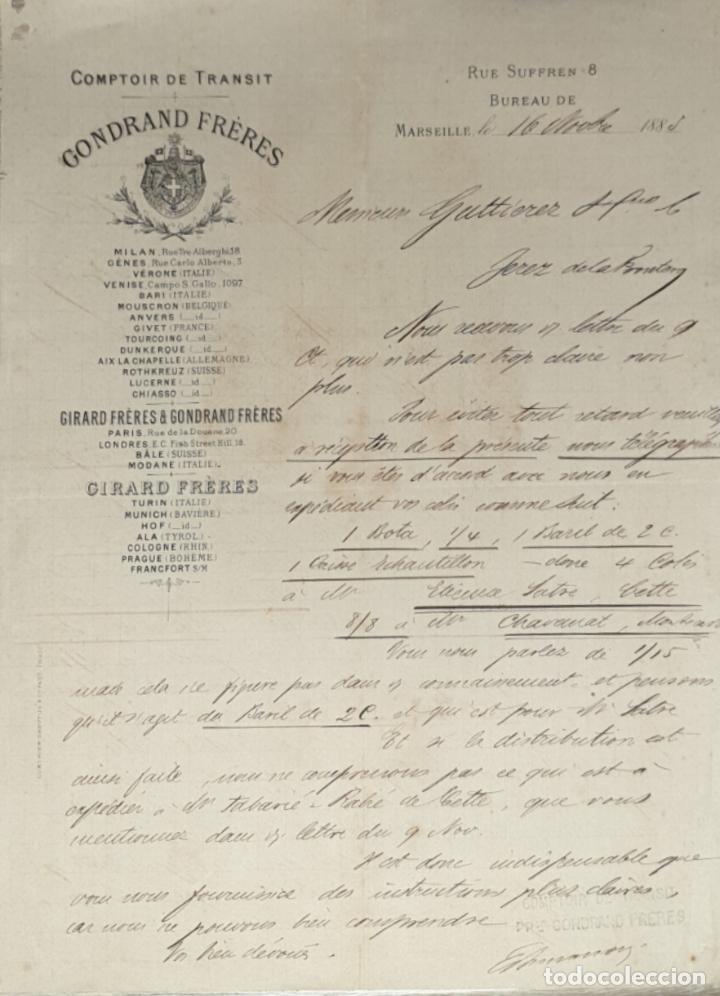 COMPTOIR DE TRANSIT
GONDRAND FRÈRES
MILAN, Rue Tre Alberghi 18
GÊNES, Rue Carlo Alberto, 3
VÉRONE (ITALIE)
VENISE, Campo S. Gallo, 1097
BARI (ITALIE)
MOUSCRON (BELGIQUE)
ANVERS (_id_)
GIVET (FRANCE)
TOURCOING (_id_)
DUNKERQUE (_id_)
AIX LA CHAPELLE (ALLEMAGNE)
ROTHKREUZ (SUISSE)
LUCERNE (_id_)
CHIASSO (_id_)
GIRARD FRÈRES & GONDRAND FRÈRES
PARIS, Rue de la Douane, 20
LONDRES, E.C. Fish Street Hill, 18
BÂLE (SUISSE)
MODANE (ITALIE)
GIRARD FRÈRES
TURIN (ITALIE)
MUNICH (BAVIÈRE)
HOF (_id_)
ALA (TYROL)
COLOGNE (RHIN)
PRAGUE (BOHÊME)
FRANCFORT S/M
RUE SUFFREN 8
BUREAU DE
MARSEILLE, le 16 Novbre 188
Messieurs Guttierez
Jerez de la Frontera
Nous recevons v/ lettre du 9
ct, qui n'est pas trop claire non
plus.
Pour éviter tout retard veuillez
à réception de la présente nous télégraphier
si vous êtes d'accord avec nous en
expédiant vos colis comme suit:
1 Bota, 1/4, 1 Baril de 2 C.
1 Caisse Echantillon - donc 4 Colis
à Mr Etienne Satre, Cette
8/8 à Mr Chavanat,
Vous nous parlez de 1/15
mais cela ne figure pas dans v/ connaissement, et pensons
qu'il s'agit du Baril de 2C. et qui est pour Mr Satre
Et si la distribution est
ainsi faite, nous ne comprenons pas ce qui est à
expédier à Mr Tabarié-Rahé de Cette, que vous
mentionnez dans v/ lettre du 9 Nov.
Il est donc indispensable que
vous nous fournissiez des instructions plus claires
car nous ne pouvons bien comprendre
Vos bien dévoués.
COMPTOIR DE TRANSIT
GONDRAND FRÈRES
todocoleccion
todocoleccion.net